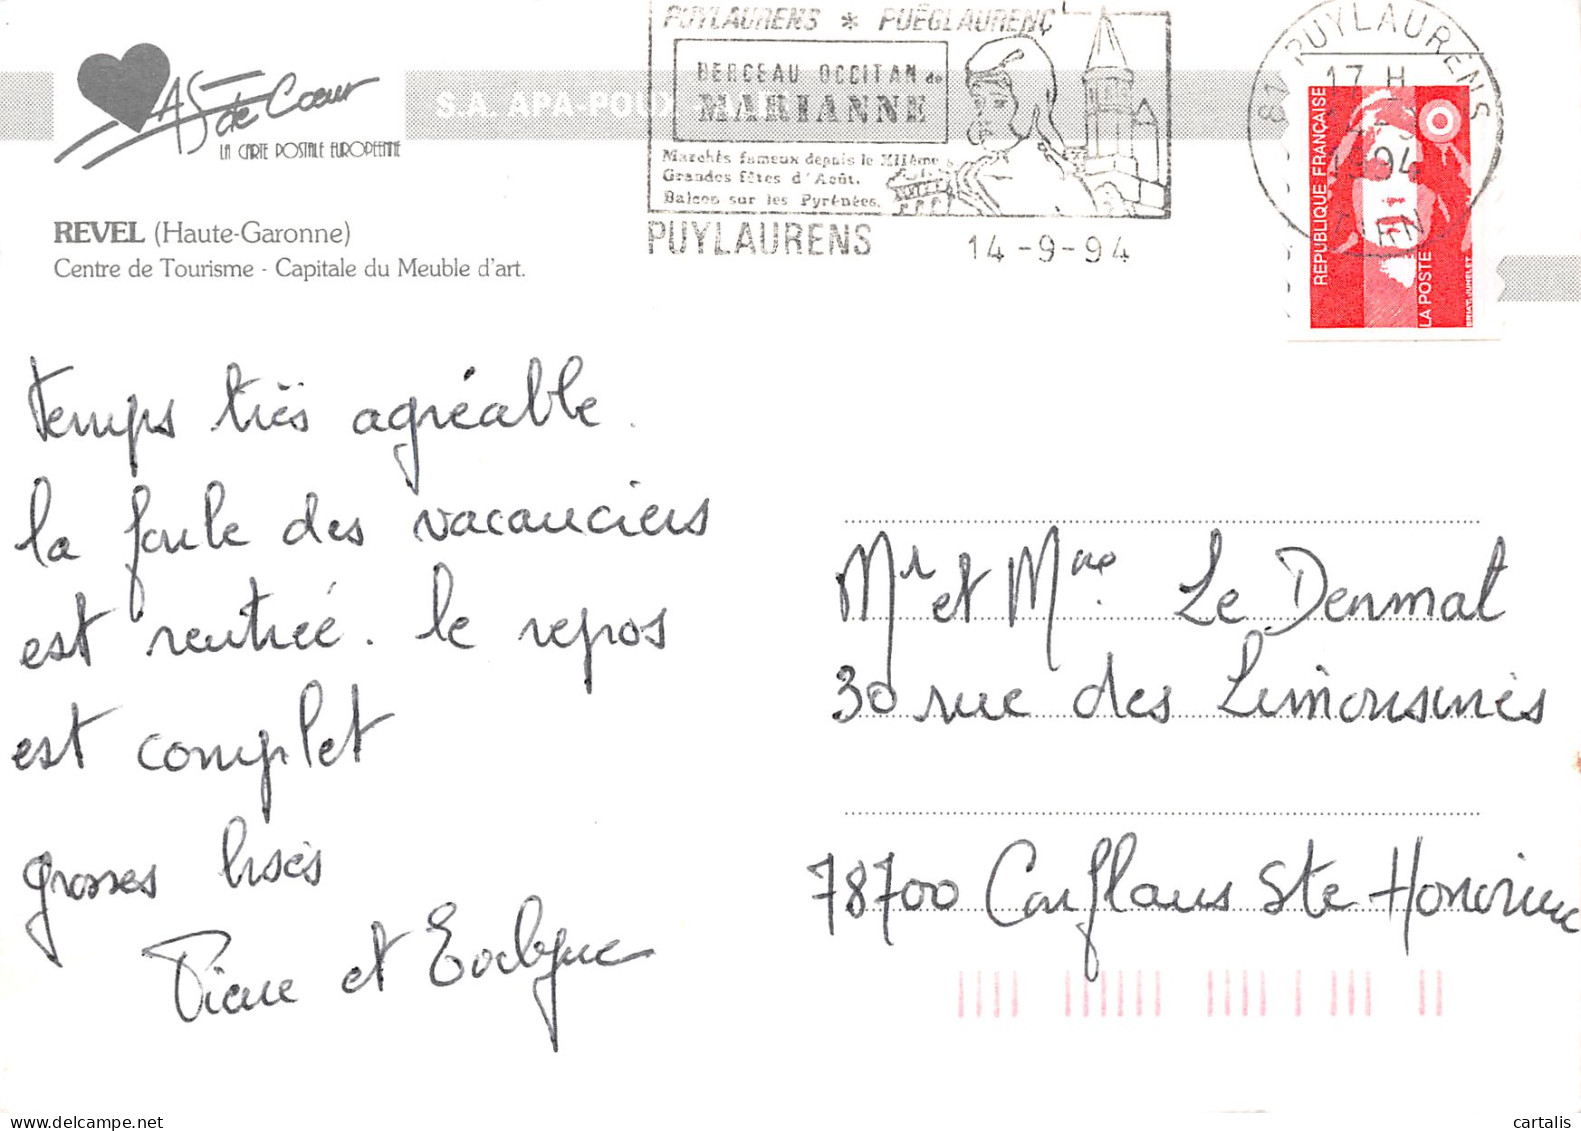 PUYLAURENS * PUÈGLAURENÇ
BERCEAU OCCITAN de
MARIANNE
Marchés fameux depuis le XIIIème s
Grandes fêtes d'Août.
Balcon sur les Pyrénées.
PUYLAURENS 14-9-94
81 PUYLAURENS
17 H
14-9
1994
TARN
RÉPUBLIQUE FRANÇAISE
LA POSTE
AS de Cœur
LA CARTE POSTALE EUROPEENNE
S.A. APA-POUX
REVEL (Haute-Garonne)
Centre de Tourisme - Capitale du Meuble d'art.
temps très agréable.
la foule des vacanciers
est rentrée. le repos
est complet
grosses bises
Pierre et Evelyne
Mr et Mme Le Denmat
30 rue des Limousines
78700 Conflans Ste Honorine
cartalis
www.delcampe.net